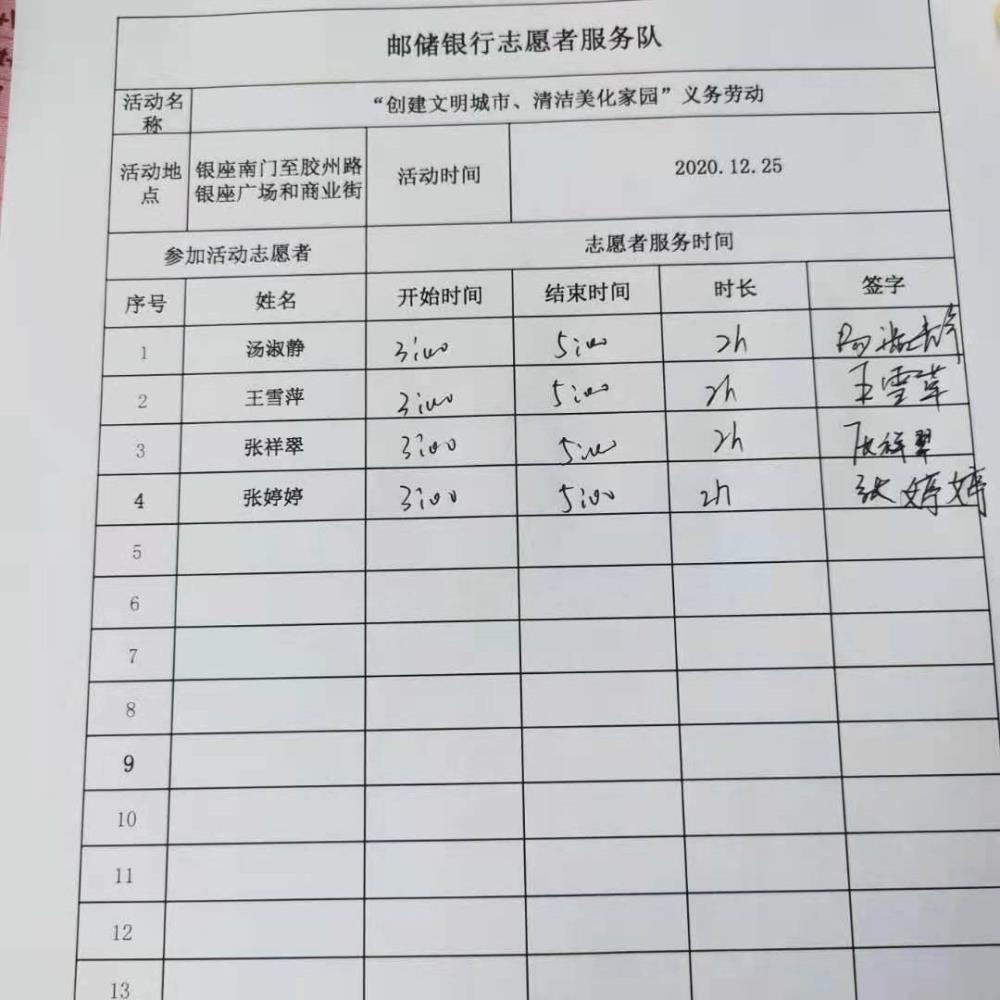 邮储银行志愿者服务队
活动名称 “创建文明城市、清洁美化家园”义务劳动
活动地点 银座南门至胶州路银座广场和商业街 活动时间 2020.12.25
参加活动志愿者 志愿者服务时间
序号 姓名 开始时间 结束时间 时长 签字
1 汤淑静 3:00 5:00 2h
2 王雪萍 3:00 5:00 2h 王雪萍
3 张祥翠 3:00 5:00 2h 张祥翠
4 张婷婷 3:00 5:00 2h 张婷婷
5
6
7
8
9
10
11
12
13